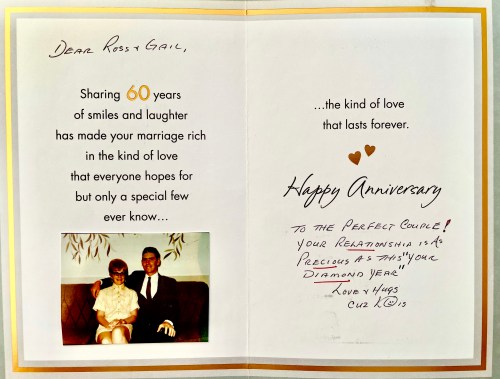 DEAR ROSS & GAIL,
Sharing 60 years
of smiles and laughter
has made your marriage rich
in the kind of love
that everyone hopes for
but only a special few
ever know...
...the kind of love
that lasts forever.
Happy Anniversary
TO THE PERFECT COUPLE!
YOUR RELATIONSHIP IS AS
PRECIOUS AS THIS "YOUR
DIAMOND YEAR"
LOVE & HUGS
CUZ